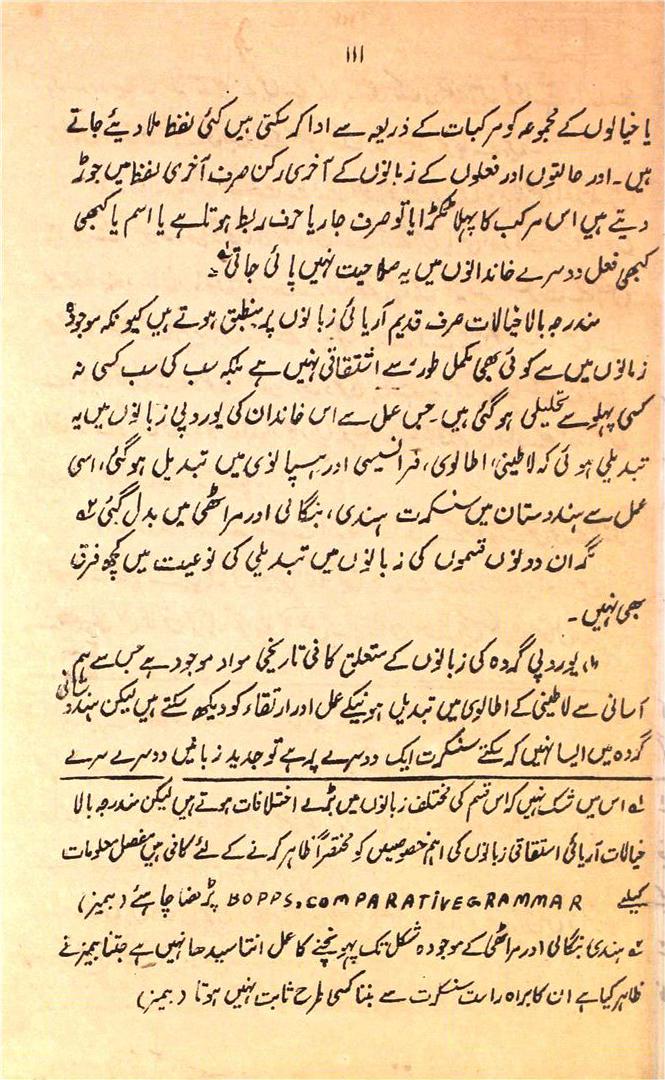 ۱۱۱
یا خیالوں کے مجموعہ کو مرکبات کے ذریعہ سے ادا کر سکتی ہیں کئی لفظ ملا دیئے جاتے
ہیں ۔ اور حالتوں اور فعلوں کے زبانوں کے آخری رکن صرف آخری لفظ میں جوڑ
دیتے ہیں اس مرکب کا پہلا ٹکڑا یا تو صرف جار یا حرف ربط ہوتا ہے یا اسم یا کبھی
کبھی فعل دوسرے خاندانوں میں یہ صلاحیت نہیں پائی جاتی ۱؎
مندرجہ بالا خیالات صرف قدیم آریائی زبانوں پر منطبق ہوتے ہیں کیونکہ موجودہ
زبانوں میں سے کوئی بھی مکمل طور سے اشتقاقی نہیں ہے بلکہ سب کی سب کسی نہ
کسی پہلو سے تحلیلی ہو گئی ہیں ۔ جس عمل سے اس خاندان کی یوروپی زبانوں میں یہ
تبدیلی ہوئی کہ لاطینی، اطالوی، فرانسیسی اور ہسپانوی میں تبدیل ہو گئی، اسی
عمل سے ہندوستان میں سنسکرت ہندی، بنگالی اور مراٹھی میں بدل گئی ۲؎
مگر ان دونوں قسموں کی زبانوں میں تبدیلی کی نوعیت میں کچھ فرق
بھی نہیں ۔
۱، یوروپی گروہ کی زبانوں کے متعلق کافی تاریخی مواد موجود ہے جس سے ہم
آسانی سے لاطینی کے اطالوی میں تبدیل ہونیکے عمل اور ارتقاء کو دیکھ سکتے ہیں لیکن ہندوستانی
گروہ میں ایسا نہیں کر سکتے سنسکرت ایک دوسرے پر ہے تو جدید زبانیں دوسرے سرے
۱؎ اس میں شک نہیں کہ اس قسم کی مختلف زبانوں میں بڑے اختلافات ہوتے ہیں لیکن مندرجہ بالا
خیالات آریائی استقاقی زبانوں کی اہم خصوصیں کو مختصراً ظاہر کرنے کے لئے کافی ہیں مفصل معلومات
کیلئے BOPPS.COMPARATIVEGRAMMAR پڑھنا چاہئے (بیمز)
۲؎ ہندی بنگالی اور مراٹھی کے موجودہ شکل تک پہونچنے کا عمل اتنا سیدھا نہیں ہے جتنا بیمز نے
ظاہر کیا ہے ان کا براہ راست سنسکرت سے بننا کسی طرح ثابت نہیں ہوتا (بیمز)